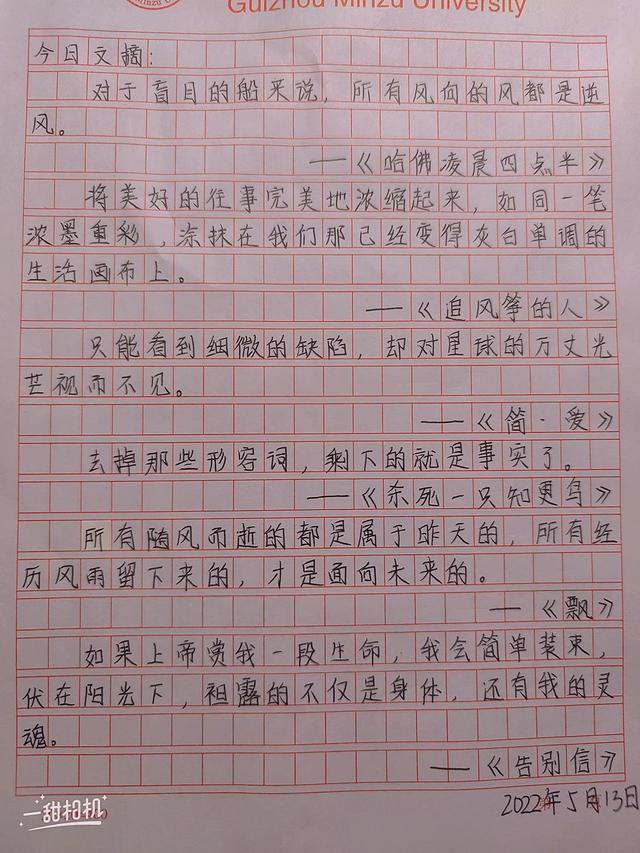 Guizhou Minzu University
今日文摘：
对于盲目的船来说，所有风向的风都是逆
风。
——《哈佛凌晨四点半》
将美好的往事完美地浓缩起来，如同一笔
浓墨重彩，涂抹在我们那已经变得灰白单调的
生活画布上。
——《追风筝的人》
只能看到细微的缺陷，却对星球的万丈光
芒视而不见。
——《简·爱》
去掉那些形容词，剩下的就是事实了。
——《杀死一只知更鸟》
所有随风而逝的都是属于昨天的，所有经
历风雨留下来的，才是面向未来的。
——《飘》
如果上帝赏我一段生命，我会简单装束，
伏在阳光下，袒露的不仅是身体，还有我的灵
魂。
——《告别信》
2022年5月13日
一甜相机